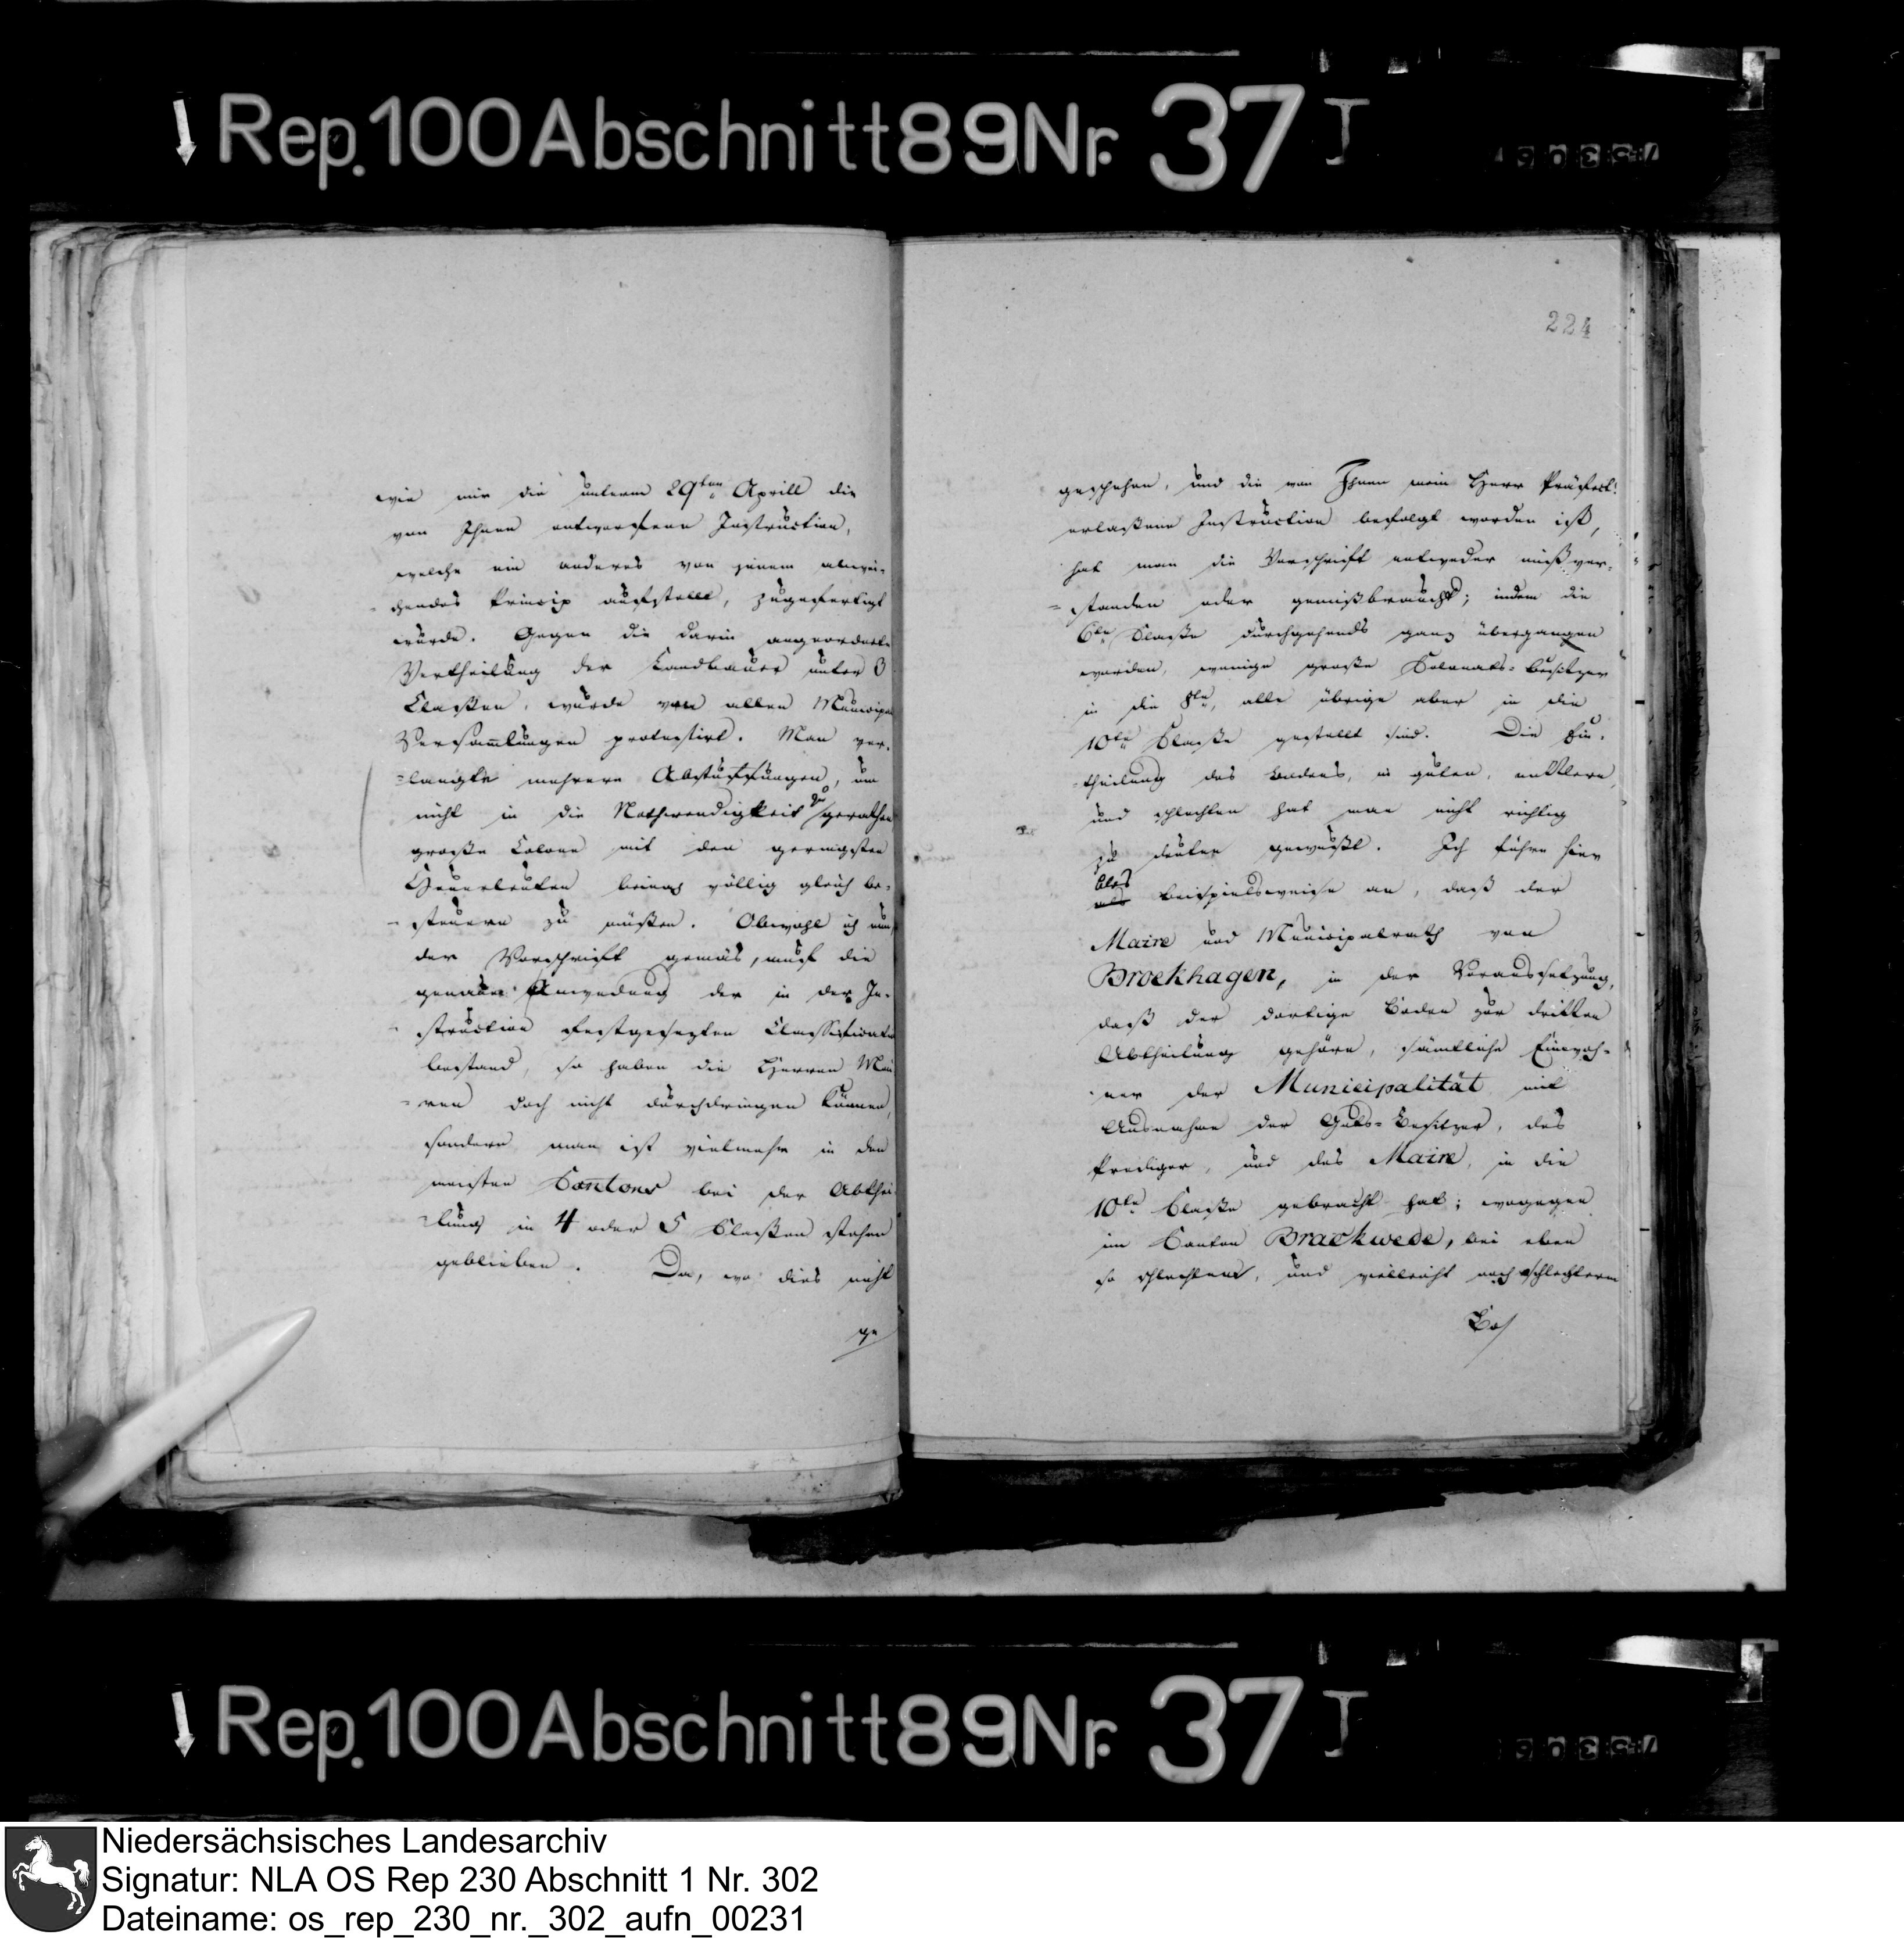 Rep. 100 Abschnitt 89 Nr. 37 I
224
wie mir die unterm 29ten Aprill die
von Ihnen entworfene Instruction,
welche ein anderes von jenem abwei-
chendes Princip aufstellt, zugefertigt
wurde. Gegen die darin angeordnete
Vertheilung der Landbauer unter 3
Classen, wurde von allen Municipal
Versam̅lungen protestirt. Man ver-
=langte mehrere Abstuffungen, um
nicht in die Nothwendigkeit zu gerathen
große Colone mit den geringsten
Heuerleuten beinah völlig gleich be-
steuern zu müßen. Obwohl ich nun,
der Vorschrift gemäs, auf die
genaue Anwendung der in der In-
struction festgesezten Classification
bestand, so haben die Herren Mai
=ren doch nicht durchdringen können,
sondern man ist vielmehr in den
meisten Cantons bei der Abthei
=lung in 4 oder 5 Classen stehen
geblieben. Da, wo dies nicht
ge
geschehen, und die von Ihnen mein Herr Präfect!
erlaßene Instruction befolgt worden ist,
hat man die Vorschrift entweder mißver-
=standen oder gemißbraucht; indem die
6te Classe durchgehends ganz übergangen
worden, wenige große Colonats-Besitzer
in die 8te, alle übrige aber in die
10te Classe gestellt sind. Die Ein-
=theilung des Bodens, in guten, mittlern,
und schlechten hat man nicht richtig
zu deuten gewußt. Ich führe hier
blos
als beispielsweise an, daß der
Maire und Municipalrath von
Brockhagen, in der Voraussetzung,
daß der dortige Boden zur dritten
Abtheilung gehöre, sämtliche Einwoh-
ner der Municipalität mit
Ausnahme der Guts-Besitzer, des
Prediger, und des Maire, in die
10te Classe gebracht hat; wogegen
im Canton Brackwede, bei eben
so schlechtem, und vielleicht noch schlechterm
Bo/
Rep. 100 Abschnitt 89 Nr. 37 I
Niedersächsisches Landesarchiv
Signatur: NLA OS Rep 230 Abschnitt 1 Nr. 302
Dateiname: os_rep_230_nr._302_aufn_00231